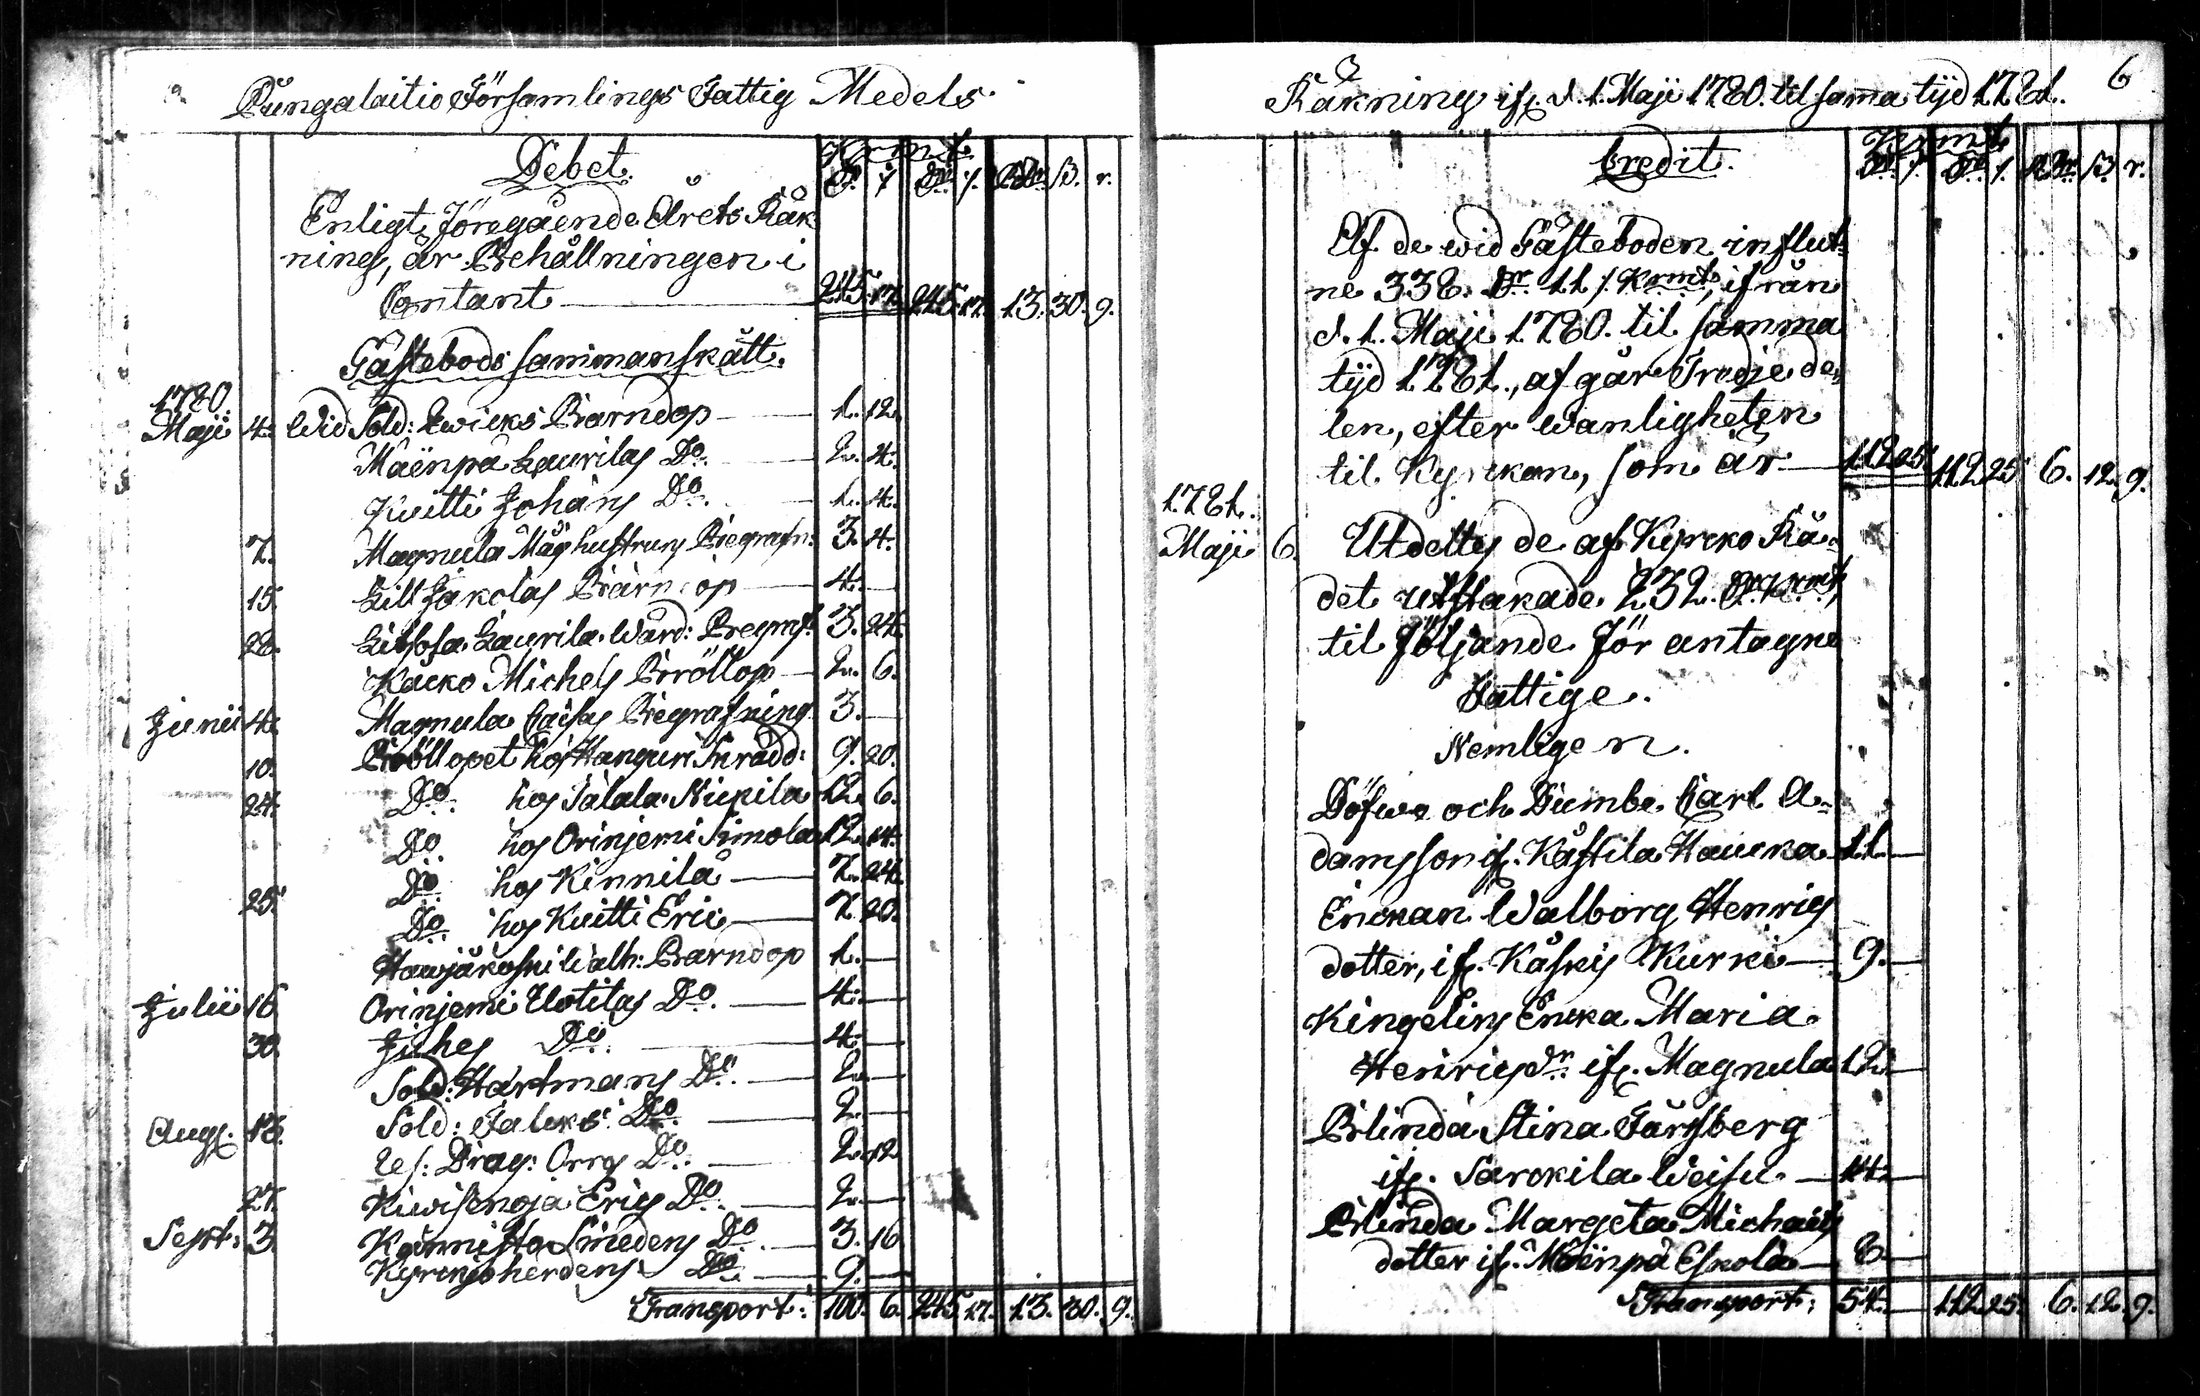 Pungalaitio Församlings Fattig Medels
Debet.
Krmt
Dr. / Dr. / RDr. ß. r.
Enligt föregående Årets Räk-
ning, är Behållningen i
Contant — 245. 17. 245. 17. 13. 30. 9.
Gästebods sammanskått.
1780.
Maji 4. Wid Sold: Qwicks Barndop — 1. 12.
Mäenpä Laurilas Do. — 2. 4.
Kuitti Johans Do. — 1. 4.
7. Magnula Mågs hustrus Begrafn: 3. 4.
15. Lill Jakolas Barndop — 4. —
28. Lill Laurila Wärd: Begraf: 3. 24.
Kacko Michels Bröllop — 2. 6.
Junii 4. Magnula Caisas Begrafning 3. —
10. Bröllopet hos Hanguri 9. 20.
24. Do. hos Sälala Nickila 12. 6.
Do. hos Orinjemi Simola 12. 14.
Do. hos Kinnilä — 7. 24.
25. Do. hos Kuitti Eric — 7. 20.
Barndop 1. —
Julii 16. Orinjemi Uotilas Do. — 4. —
30. Juhes Do. — 4. —
Sold: Hartmans Do. — 2. —
Aug. 13. Sold: Falcks Do. — 2. —
Res: Drag: Orrs Do. — 2. 12.
27. Kiwisenoja Erics Do. — 2. —
Sept: 3. Kånnisto Smedens Do. — 3. 16.
Kyrckoherdens Do. — 9. —
Transport: 100. 6. 245. 17. 13. 30. 9.
Räkning ifr. d. 1. Maji 1780. til samma tijd 1781. 6
Credit.
Krmt
Dr. / Dr. / RDr. ß. r.
Af de wid Gästeboden influt-
ne 338. Dr. 11 / Krmt, ifrån
d. 1. Maji 1780. til samma
tijd 1781., afgår Tredje de-
len, efter wanligheten
til Kyrckan, som är — 112 25. 112 25. 6. 12. 9.
1781.
Maji 6. Utdeltes de af Kyrcko Rå-
det utstakade 232. Dr. Krmt,
til följande för antagne
Fattige.
Nemligen.
Döfwe och Dumbe Carl A-
damsson ifr. Kåstila Haucka 11. —
Enckan Walborg Henrics
dotter, ifr. Käskis Kurki — 9. —
Kingelins Encka Maria
Henricsdr. ifr. Magnula 12. —
Blinda Stina Färsberg
ifr. Sarckila Weisu — 14. —
Blinda Margeta Michaels
dotter ifr. Mäenpä Eskola — 8 —
Transport: 54. — 112 25. 6. 12. 9.